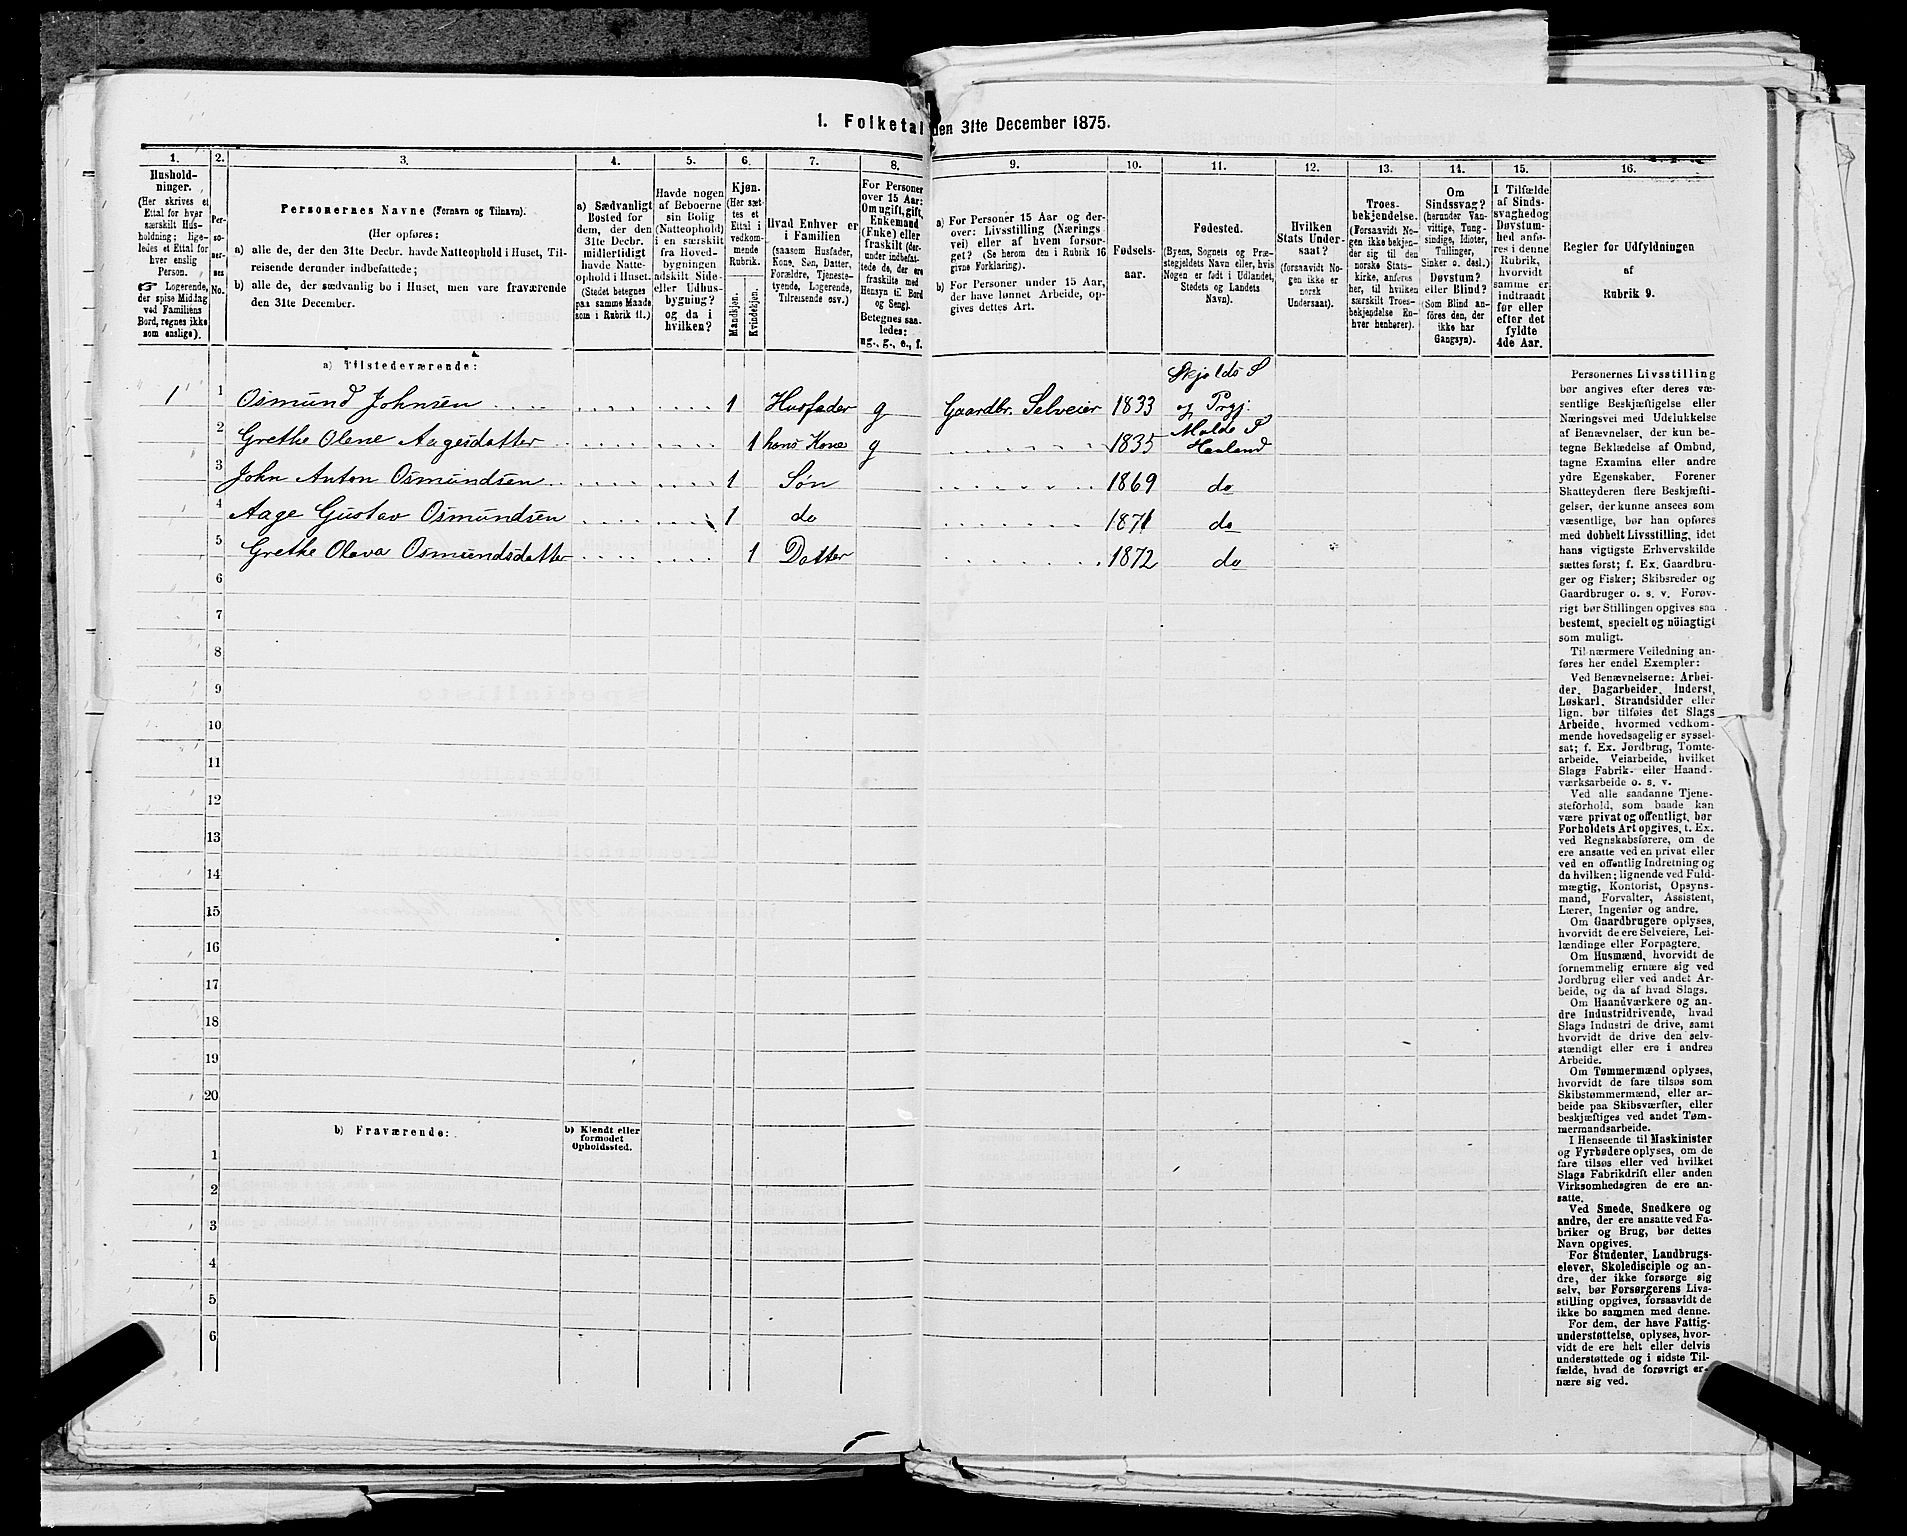 1. Folketal den 31te December 1875.
1. 2. 3. 4. 5. 6. 7. 8. 9. 10. 11. 12. 13. 14. 15. 16.
Hushold-
ninger.
(Her skrives et
Ettal for hver
særskilt Hus-
holdning; lige-
ledes et Ettal for
hver enslig
Person.
☞ Logerende,
der spise Middag
ved Familiens
Bord, regnes ikke
som enslige).
Per-
so-
ner-
nes
No.
Personernes Navne (Fornavn og Tilnavn).
(Her opføres:
a) alle de, der den 31te Decbr. havde Natteophold i Huset, Til-
reisende derunder indbefattede;
b) alle de, der sædvanlig bo i Huset, men vare fraværende
den 31te December.
a) Sædvanligt
Bosted for
dem, der den
31te Decbr.
midlertidigt
havde Natte-
ophold i Huset.
(Stedet betegnes
paa samme Maade
som i Rubrik 11.)
Havde nogen
af Beboerne
sin Bolig
(Natteophold)
i en særskilt
fra Hoved-
bygningen
adskilt Side-
eller Udhus-
bygning?
og da i
hvilken?
Kjøn.
(Her sæt-
tes et
Ettal i
vedkom-
mende
Rubrik.
Mandkjøn.
Kvindekjøn.
Hvad Enhver er
i Familien
(saasom Husfader,
Kone, Søn, Datter,
Forældre, Tjeneste-
tyende, Logerende,
Tilreisende osv.)
For Personer
over 15 Aar:
Om ugift, gift,
Enkemand
(Enke) eller
fraskilt (der-
under indbefat-
tede de, der ere
fraskilte med
Hensyn til Bord
og Seng).
Betegnes saa-
ledes:
ug., g., e., f.
a) For Personer 15 Aar og der-
over: Livsstilling (Nærings-
vei) eller af hvem forsør-
get? (Se herom den i Rubrik 16
givne Forklaring).
b) For Personer under 15 Aar,
der have lønnet Arbeide, op-
gives dettes Art.
Fødsels-
aar.
Fødested.
(Byens, Sognets og Præ-
stegjeldets Navn eller, hvis
Nogen er født i Udlandet,
Stedets og Landets
Navn).
Hvilken
Stats Under-
saat?
(forsaavidt No-
gen ikke er
norsk
Undersaat).
Troes-
bekjendelse.
(Forsaavidt No-
gen ikke bekjen-
der sig til den
norske Stats-
kirke, anføres
her, til hvilken
særskilt Troes-
bekjendelse En-
hver henhører).
Om
Sindssvag?
(herunder Van-
vittige, Tung-
sindige, Idioter,
Tullinger,
Sinker o. desl.)
Døvstum?
eller Blind?
(Som Blind an-
føres den, der
ikke har
Gangsyn).
I Tilfælde
af Sinds-
svaghed og
Døvstum-
hed anfø-
res i denne
Rubrik,
hvorvidt
samme er
indtraadt
før eller
efter det
fyldte
4de Aar.
Regler for Udfyldningen
af
Rubrik 9.
a) Tilstedeværende:
1 1 Osmund Johnsen 1 Husfader g Gaardbr. Selveier 1833 Skjolds S og Prgj.
2 Grethe Olene Aagesdatter 1 hans Kone g 1835
3 John Anton Osmundsen 1 Søn 1869 do
4 Aage Gustav Osmundsen 1 do 1871 do
5 Grethe Olava Osmundsdatter 1 Datter 1872 do
6
7
8
9
10
11
12
13
14
15
16
17
18
19
20
b) Fraværende:
b) Kjendt eller
formodet
Opholdssted.
1
2
3
4
5
6
Personernes Livsstilling
bør angives efter deres væ-
sentlige Beskjæftigelse eller
Næringsvei med Udelukkelse
af Benævnelser, der kun be-
tegne Beklædelse af Ombud,
tagne Examina eller andre
ydre Egenskaber. Forener
Skatteyderen flere Beskjæfti-
gelser, der kunne ansees som
væsentlige, bør han opføres
med dobbelt Livsstilling, idet
hans vigtigste Erhvervskilde
sættes først; f. Ex. Gaardbru-
ger og Fisker; Skibsreder og
Gaardbruger o. s. v. Forøv-
rigt bør Stillingen opgives saa
bestemt, specielt og nøiagtigt
som muligt.
Til nærmere Veiledning an-
føres her endel Exempler:
Ved Benævnelserne: Arbei-
der, Dagarbeider, Inderst,
Løskarl, Strandsidder eller
lign. bør tilføies det Slags
Arbeide, hvormed vedkom-
mende hovedsagelig er syssel-
sat; f. Ex. Jordbrug, Tomte-
arbeide, Veiarbeide, hvilket
Slags Fabrik- eller Haand-
værksarbeide o. s. v.
Ved alle saadanne Tjene-
steforhold, som baade kan
være privat og offentligt, bør
Forholdets Art opgives, t. Ex.
ved Regnskabsførere, om de
ere ansatte ved en privat eller
ved en offentlig Indretning og
da hvilken; lignende ved Fuld-
mægtig, Kontorist, Opsyns-
mand, Forvalter, Assistent,
Lærer, Ingeniør og andre.
Om Gaardbrugere oplyses,
hvorvidt de ere Selveiere, Lei-
lændinge eller Forpagtere.
Om Husmænd, hvorvidt de
fornemmelig ernære sig ved
Jordbrug eller ved andet Ar-
beide, og da af hvad Slags.
Om Haandværkere og an-
dre Industridrivende, hvad
Slags Industri de drive, samt
hvorvidt de drive den selv-
stændigt eller ere i andres
Arbeide.
Om Tømmermænd oplyses,
hvorvidt de fare tilsøs som
Skibstømmermænd, eller ar-
beide paa Skibsværfter, eller
beskjæftiges ved andet Tøm-
mermandsarbeide.
I Henseende til Maskinister
og Fyrbødere oplyses, om de
fare tilsøs eller ved hvilket
Slags Fabrikdrift eller anden
Virksomhedsgren de ere an-
satte.
Ved Smede, Snedkere og
andre, der ere ansatte ved Fa-
briker og Brug, bør dettes
Navn opgives.
For Studenter, Landbrugs-
elever, Skoledisciple og an-
dre, der ikke forsørge sig
selv, bør Forsørgerens Livs-
stilling opgives, forsaavidt de
ikke bo sammen med denne.
For dem, der have Fattig-
understøttelse, oplyses, hvor-
vidt de ere helt eller delvis
understøttede og i sidste Til-
fælde, hvad de forøvrigt er-
nære sig ved.